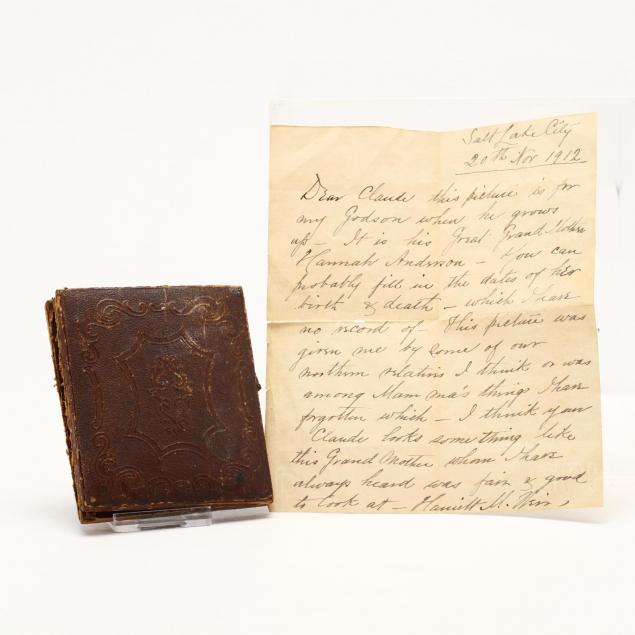 Salt Lake City
20th Nov 1912
Dear Claude this picture is for
my Godson when he grows
up - It is his Great Grand Mother
Hannah Anderson - You can
probably fill in the dates of her
birth & death - which I have
no record of - This picture was
given me by some of our
northern relatives I think or was
among Mamma's things I have
forgotten which - I think your
Claude looks something like
this Grand Mother whom I have
always heard was fair & good
to look at - Harriett M.